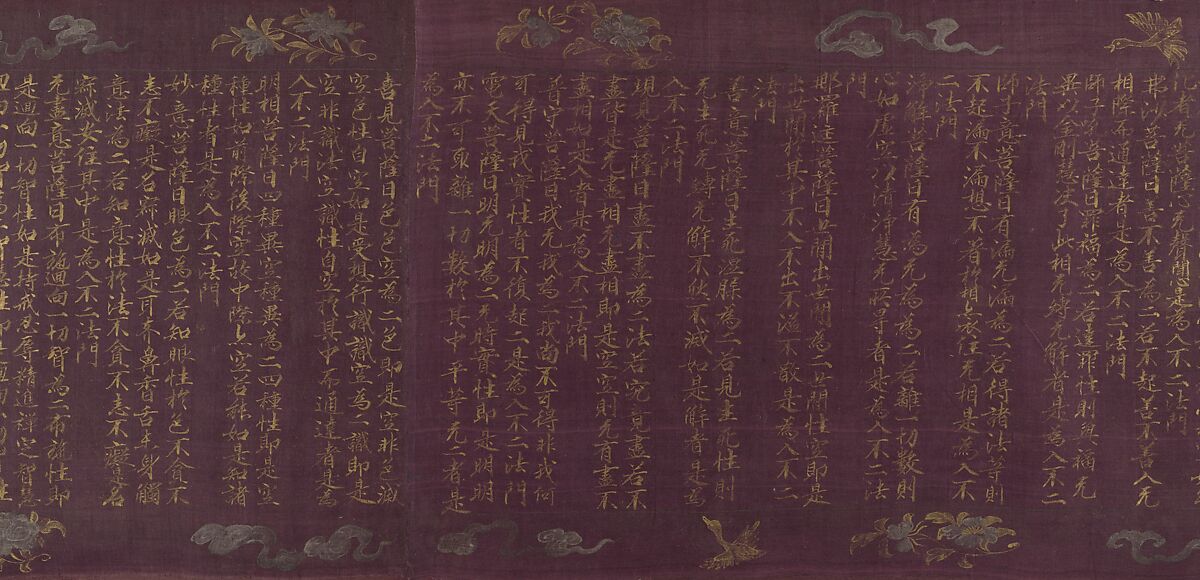 化者无菩薩心无聲聞心是為入不二法門
弗沙菩薩曰善不善為二若不起善不善入无
相際而通達者是為入不二法門
師子菩薩曰罪福為二若達罪性則與福无
異以金剛慧決了此相无縛无解者是為入不二
法門
師子意菩薩曰有漏无漏為二若得諸法等則
不起漏不漏想不著於相亦不住无相是為入不
二法門
淨解菩薩曰有為无為為二若離一切數則
心如虛空以清淨慧无所㝵者是為入不二法
門
那羅延菩薩曰世間出世間為二世間性空即是
出世間於其中不入不出不溢不散是為入不二
法門
善意菩薩曰生死涅槃為二若見生死性則
无生死无縛无解不然不滅如是解者是為
入不二法門
現見菩薩曰盡不盡為二法若究竟盡若不
盡皆是无盡相无盡相即是空空則无有盡不
盡相如是入者是為入不二法門
普守菩薩曰我无我為二我尚不可得非我何
可得見我實性者不復起二是為入不二法門
電天菩薩曰明无明為二无明實性即是明明
亦不可取離一切數於其中平等无二者是
為入不二法門
喜見菩薩曰色色空為二色即是空非色滅
空色性自空如是受想行識識空為二識即是
空非識滅空識性自空於其中而通達者是為
入不二法門
明相菩薩曰四種異空種異為二四種性即是空
種性如前際後際空故中際亦空若能如是知諸
種性者是為入不二法門
妙意菩薩曰眼色為二若知眼性於色不貪不
恚不癡是名寂滅如是耳聲鼻香舌味身觸
意法為二若知意性於法不貪不恚不癡是名
寂滅安住其中是為入不二法門
无盡意菩薩曰布施迴向一切智為二布施性即
是迴向一切智性如是持戒忍辱精進禪定智慧